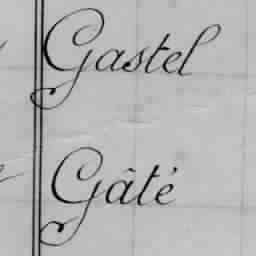 Gastel
Gâté